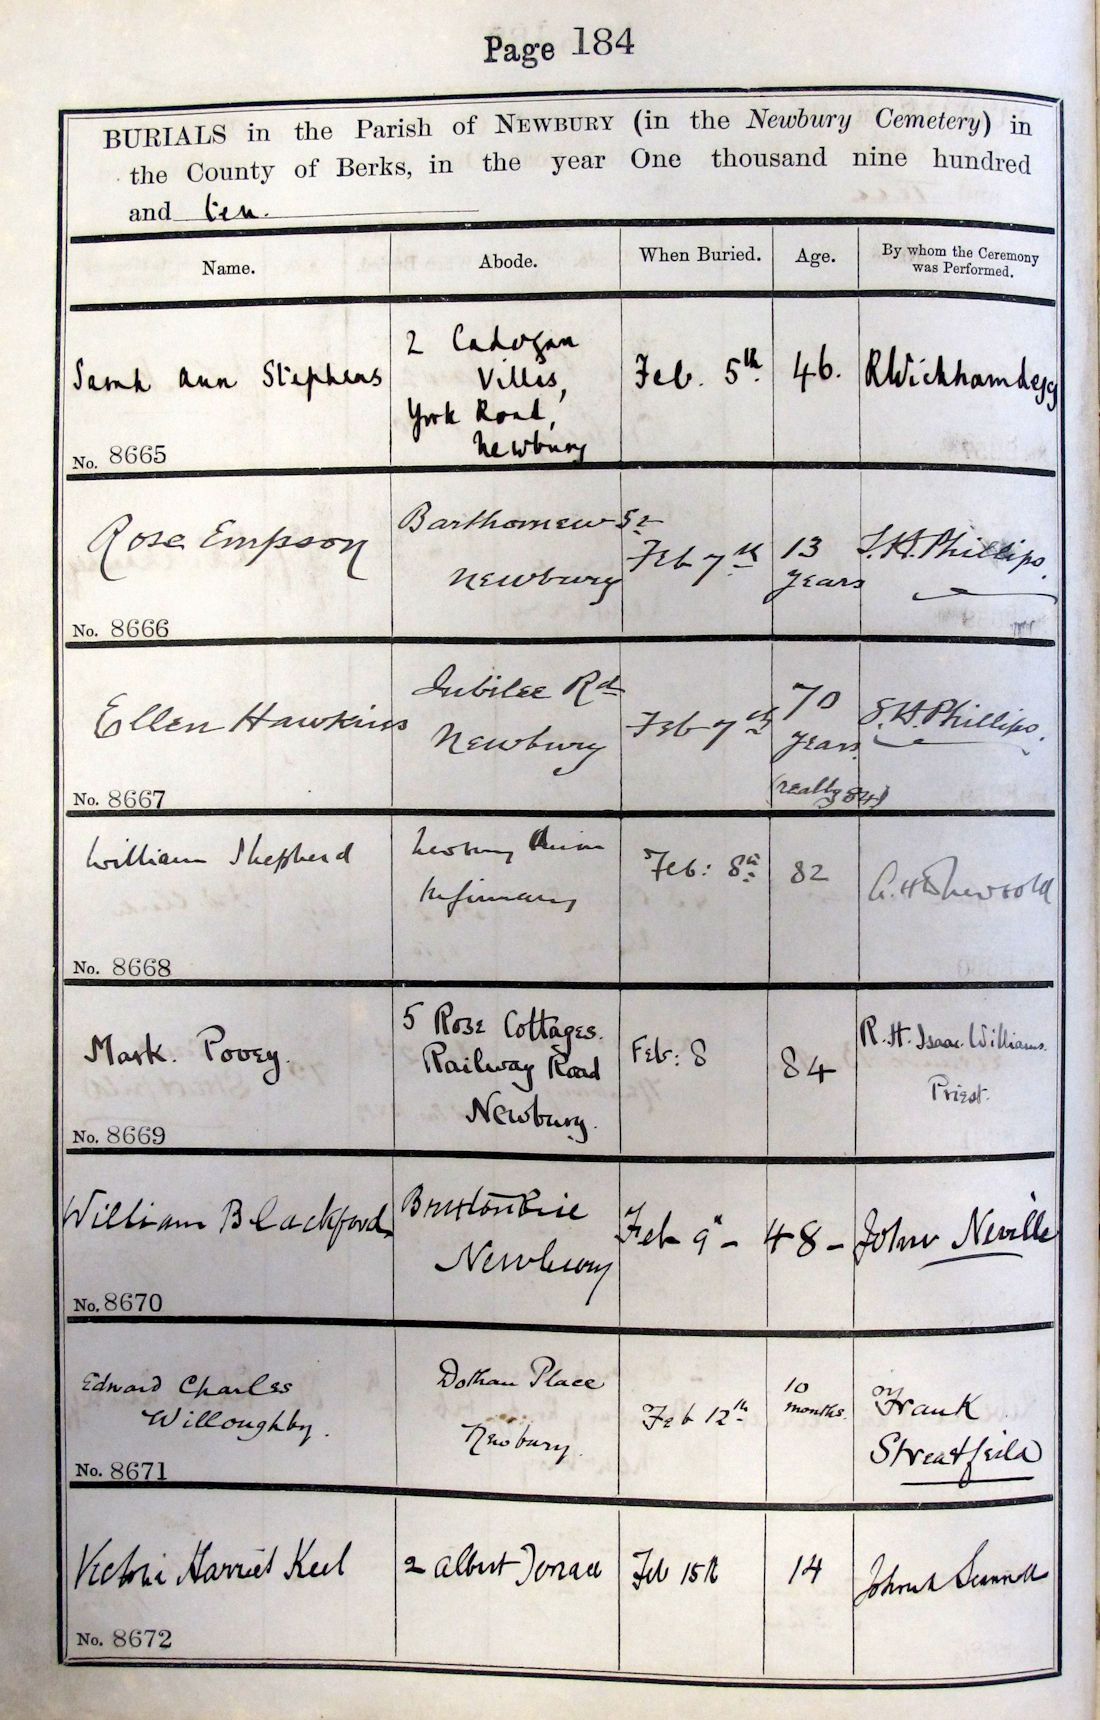 Page 184
BURIALS in the Parish of NEWBURY (in the Newbury Cemetery) in
the County of Berks, in the year One thousand nine hundred
and ten.
Name.
Abode.
When Buried.
Age.
By whom the Ceremony
was Performed.
Sarah Ann Stephens
2 Cadogan
Villas,
York Road,
Newbury
Feb. 5th.
46.
RWickhamLegg
No. 8665
Rose Empson
Barthomew St
Newbury
Feb 7th
13
years
S.H.Phillips.
No. 8666
Ellen Hawkins
Jubilee Rd
Newbury
Feb 7th
70
years
(really 84)
S.H.Phillips.
No. 8667
William Shepherd
Newbury Union
Infirmary
Feb: 8th
82
No. 8668
Mark. Povey.
5 Rose Cottages.
Railway Road
Newbury.
Feb: 8
84
R. H. Isaac Williams.
Priest.
No. 8669
William Blackford
Newbury
Feb 9th -
48 -
John Neville
No. 8670
Edward Charles
Willoughby.
Dolhan Place
Newbury.
Feb 12th
10
months.
Frank
Streatfeild
No. 8671
Victoria Harriet Keel
2 Albert Terrace
Feb 15th
14
No. 8672